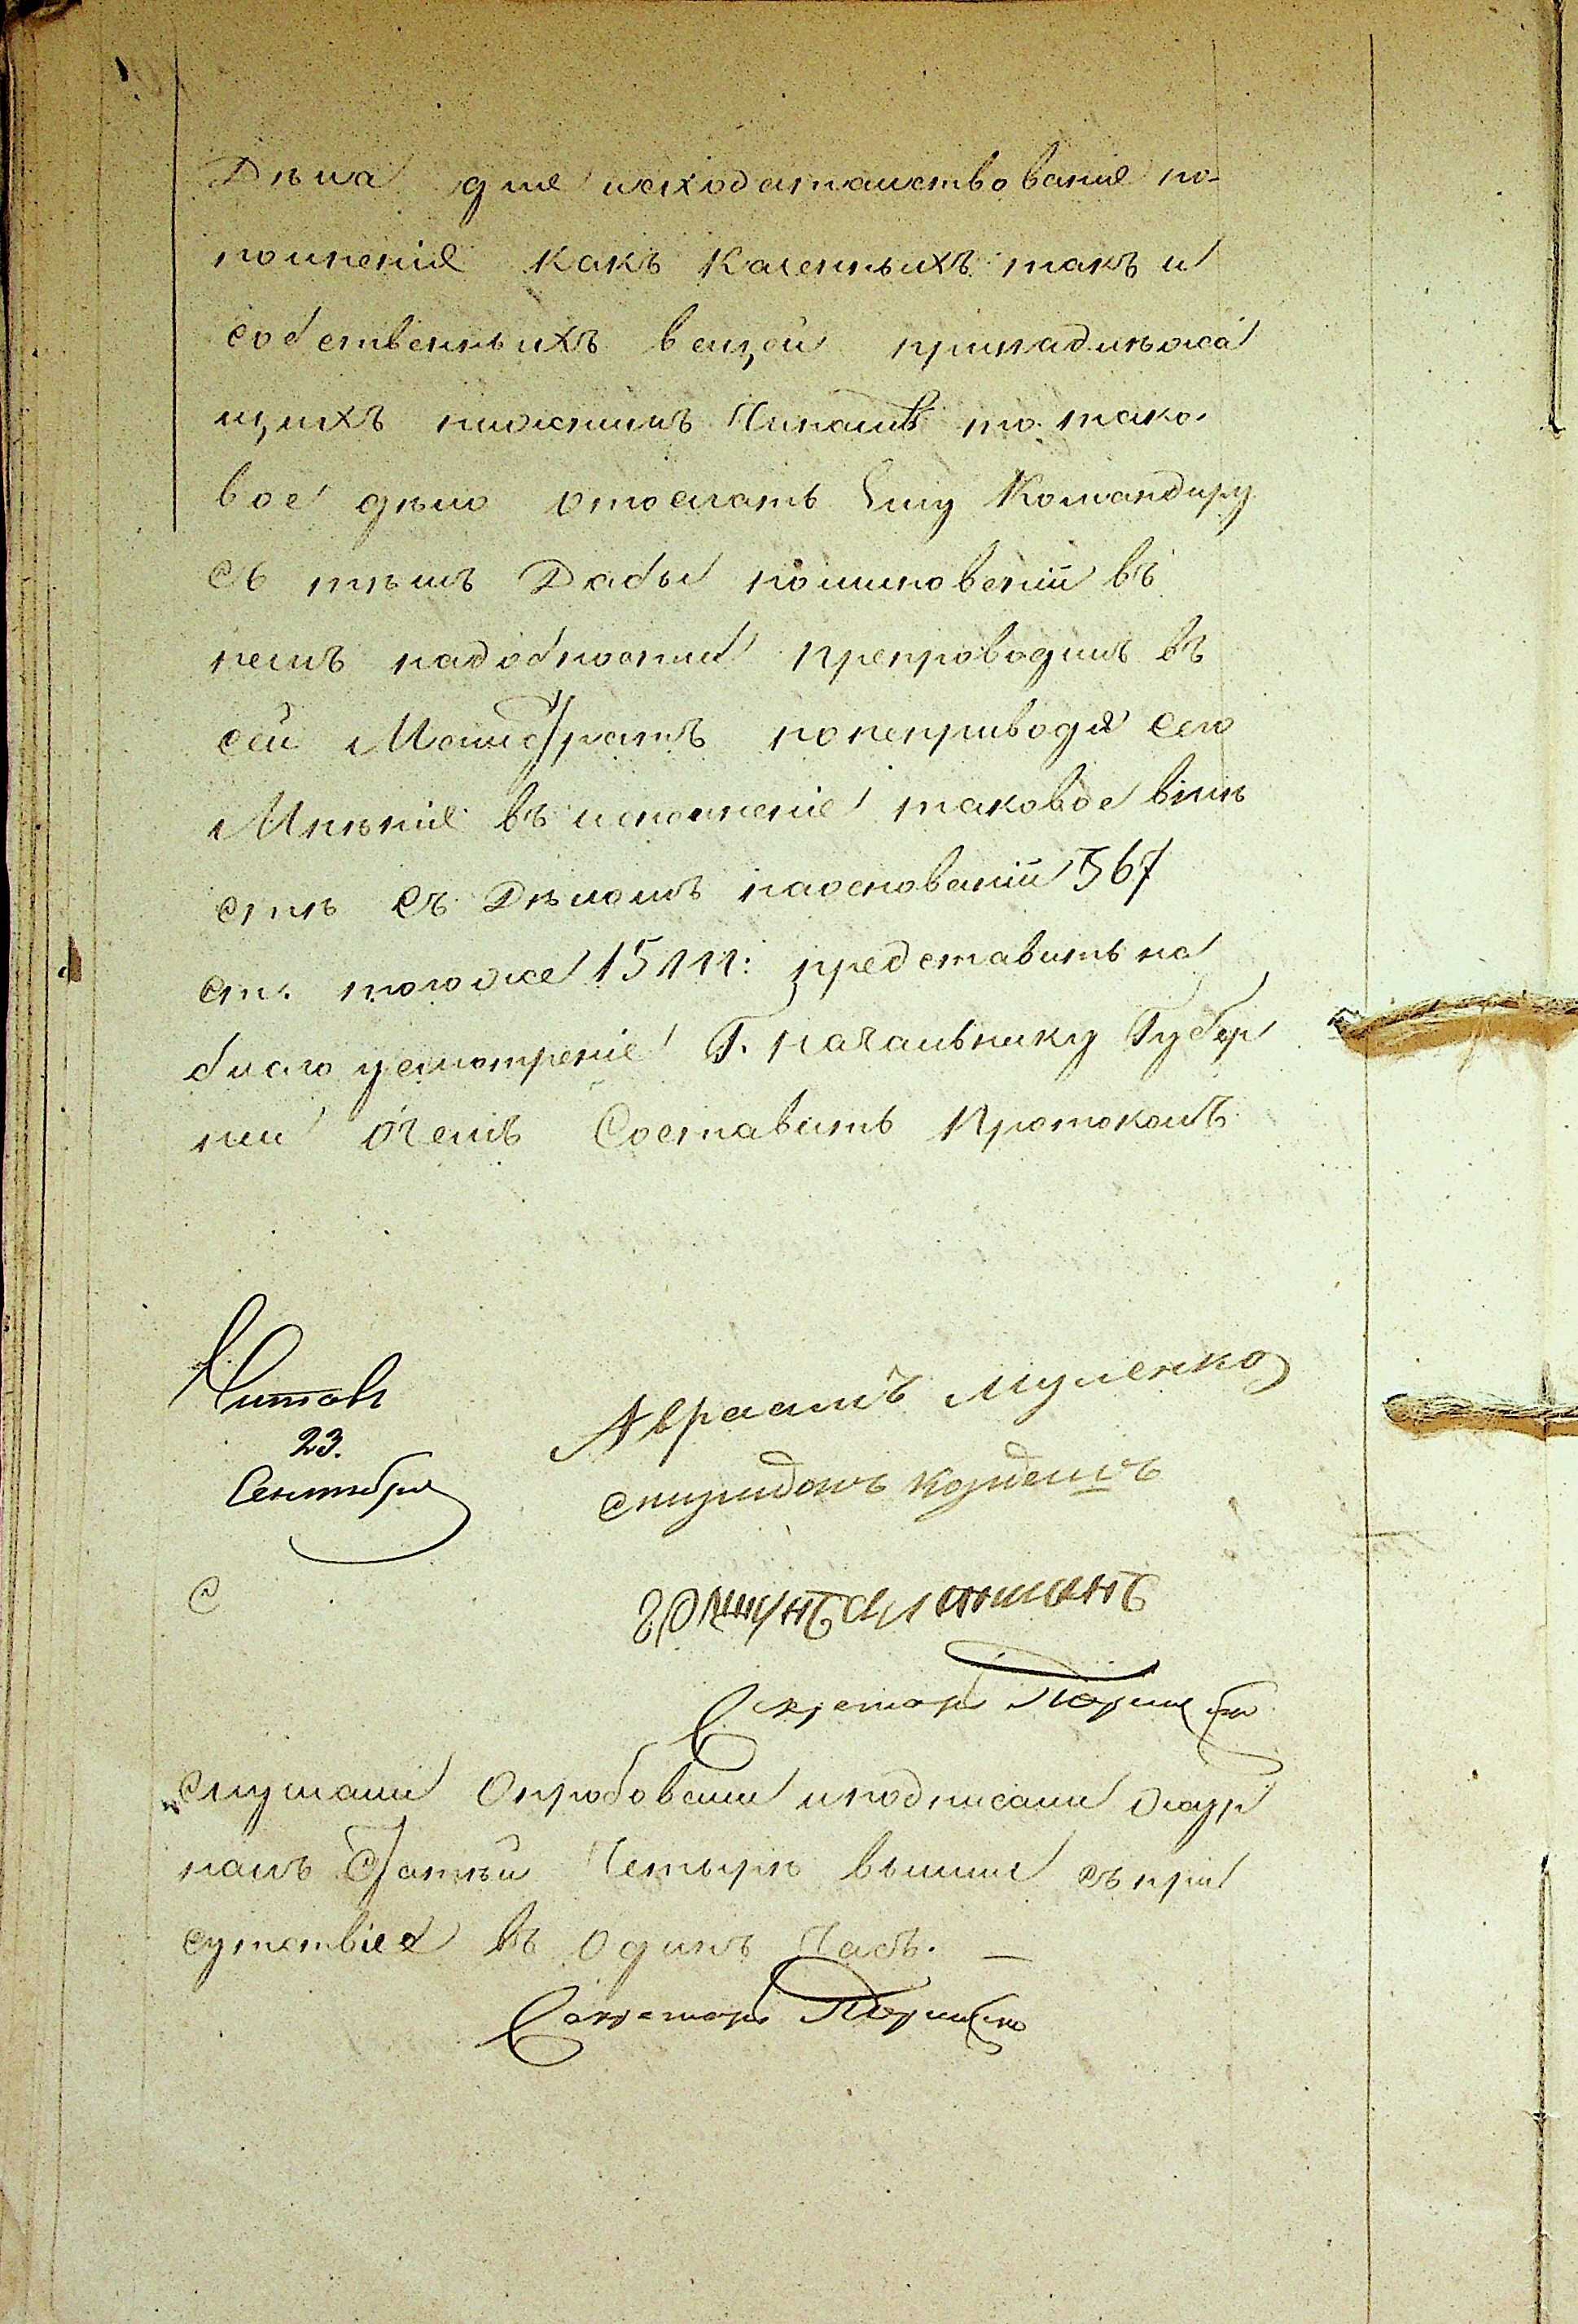 Дѣла для исходатайствованія по-
полненія какъ Казенныхъ такъ и
собственныхъ вещей принадлѣжа
щихъ нижнимъ Чинамъ то тако-
вое дѣло отослать Ему Командиру
съ тѣмъ Дабы поминовеніи въ
немъ надобности препроводилъ въ
сей Магистратъ но неприводя сего
Мнѣнія въ исполненіе таковое вмѣ
стѣ съ Дѣломъ наоснованіи 567
ст. тогоже 15 т: представить на
благо усмотреніе Г. начальнику Губер
ніи очемъ Составить Протоколъ
Читалъ
23.
Сентября
Авраамъ Муленко
спиридонъ
С
Секретарь
слушали Опробовали иподписали жур
налъ Статѣй Четыре вышли съ при
сутствія въ Одинъ Часъ. —
Секретарь